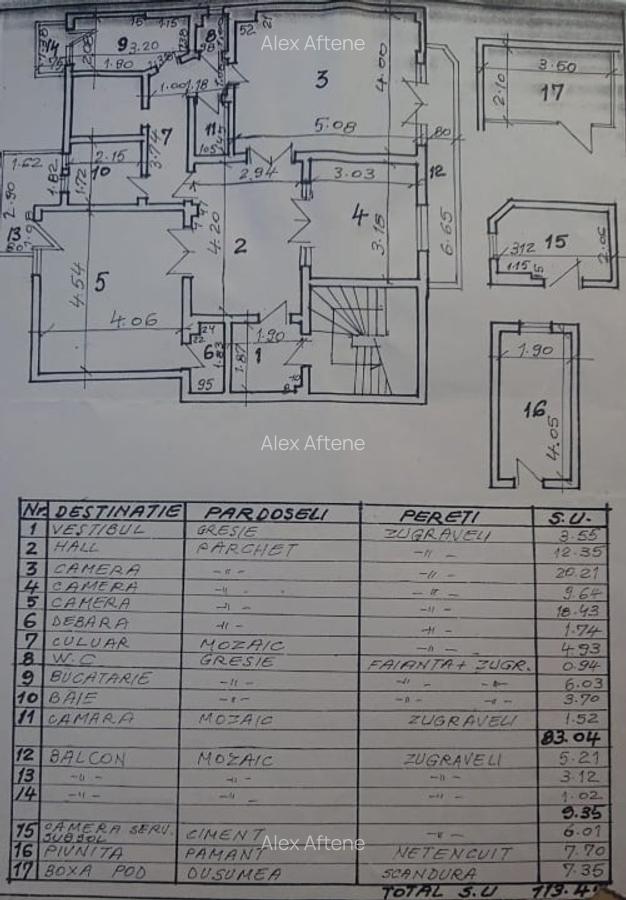 Alex Aftene
14
9
3.20
1.15
8
52
3
4.00
3.50
2.10
17
1.80
1.00
1.18
7
11
5.08
80
1.62
2.15
10
1.82
1.72
2.94
3.03
12
2.90
13
4.20
2
4
3.18
6.65
312
15
2.06
1.15
5
4.54
4.06
24
22
6
1.83
1
1.90
1.87
95
1.90
16
4.05
Alex Aftene
Nr. DESTINATIE PARDOSELI PERETI S.U.
1 VESTIBUL GRESIE ZUGRAVELI 3.55
2 HALL PARCHET -"- 12.35
3 CAMERA -"- -"- 20.21
4 CAMERA -"- -"- 9.64
5 CAMERA -"- -"- 18.43
6 DEBARA -"- -"- 1.74
7 CULUAR MOZAIC -"- 4.93
8 W.C GRESIE FAIANTA + ZUGR. 0.94
9 BUCATARIE -"- -"- -"- 6.03
10 BAIE -"- -"- -"- 3.70
11 CAMARA MOZAIC ZUGRAVELI 1.52
83.04
12 BALCON MOZAIC ZUGRAVELI 5.21
13 -"- -"- -"- 3.12
14 -"- -"- -"- 1.02
9.35
15 CAMERA SERV. SUBSOL CIMENT -"- 6.01
Alex Aftene
16 PIVNITA PAMANT NETENCUIT 7.70
17 BOXA POD DUSUMEA SCANDURA 7.35
TOTAL S.U 113.45